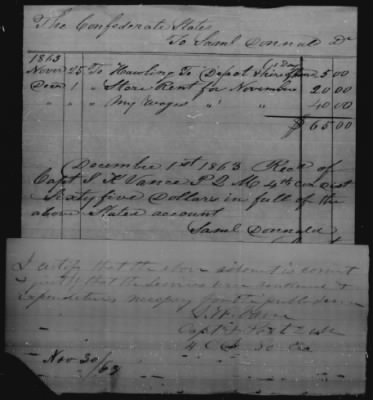 The Confederate States
To Saml Donnald Dr
1863
1 Day
Novr 25 To Hawling To Depot & hire 5.00
Decr 1 " Store Rent for Novembre 20.00
" " " My Wages " " 40.00
$65.00
December 1st 1863 Recd of
Capt S H Vance P Q M 4th Con Dist
Sixty five Dollars in full of the
above States account
Saml Donnald
I certify that the above account is correct
& just that the Services were rendered &
Expenditures necessary for the public
Capt &
Nov 30/63